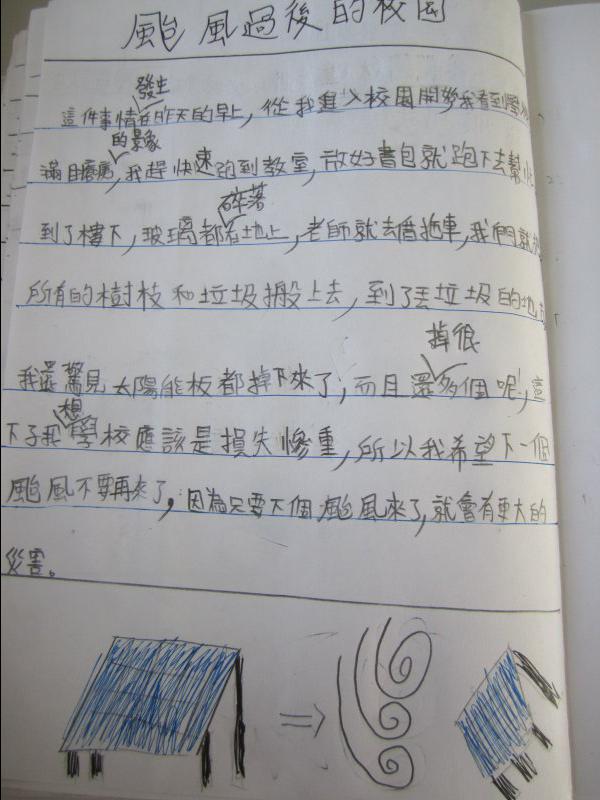 颱風過後的校園
發生
這件事情在昨天的早上,從我進入校園開始我看到學
的景象
滿目瘡痍,我趕快速跑到教室,放好書包就跑下去幫忙
碎落
到了樓下,玻璃都在地上,老師就去借拖車,我們就
所有的樹枝和垃圾搬上去,到了丟垃圾的地
掉很
我還驚見太陽能板都掉下來了,而且還多個呢!,這
想
下子我學校應該是損失慘重,所以我希望下一個
颱風不要再來了,因為只要下個颱風來了,就會有更大的
災害。